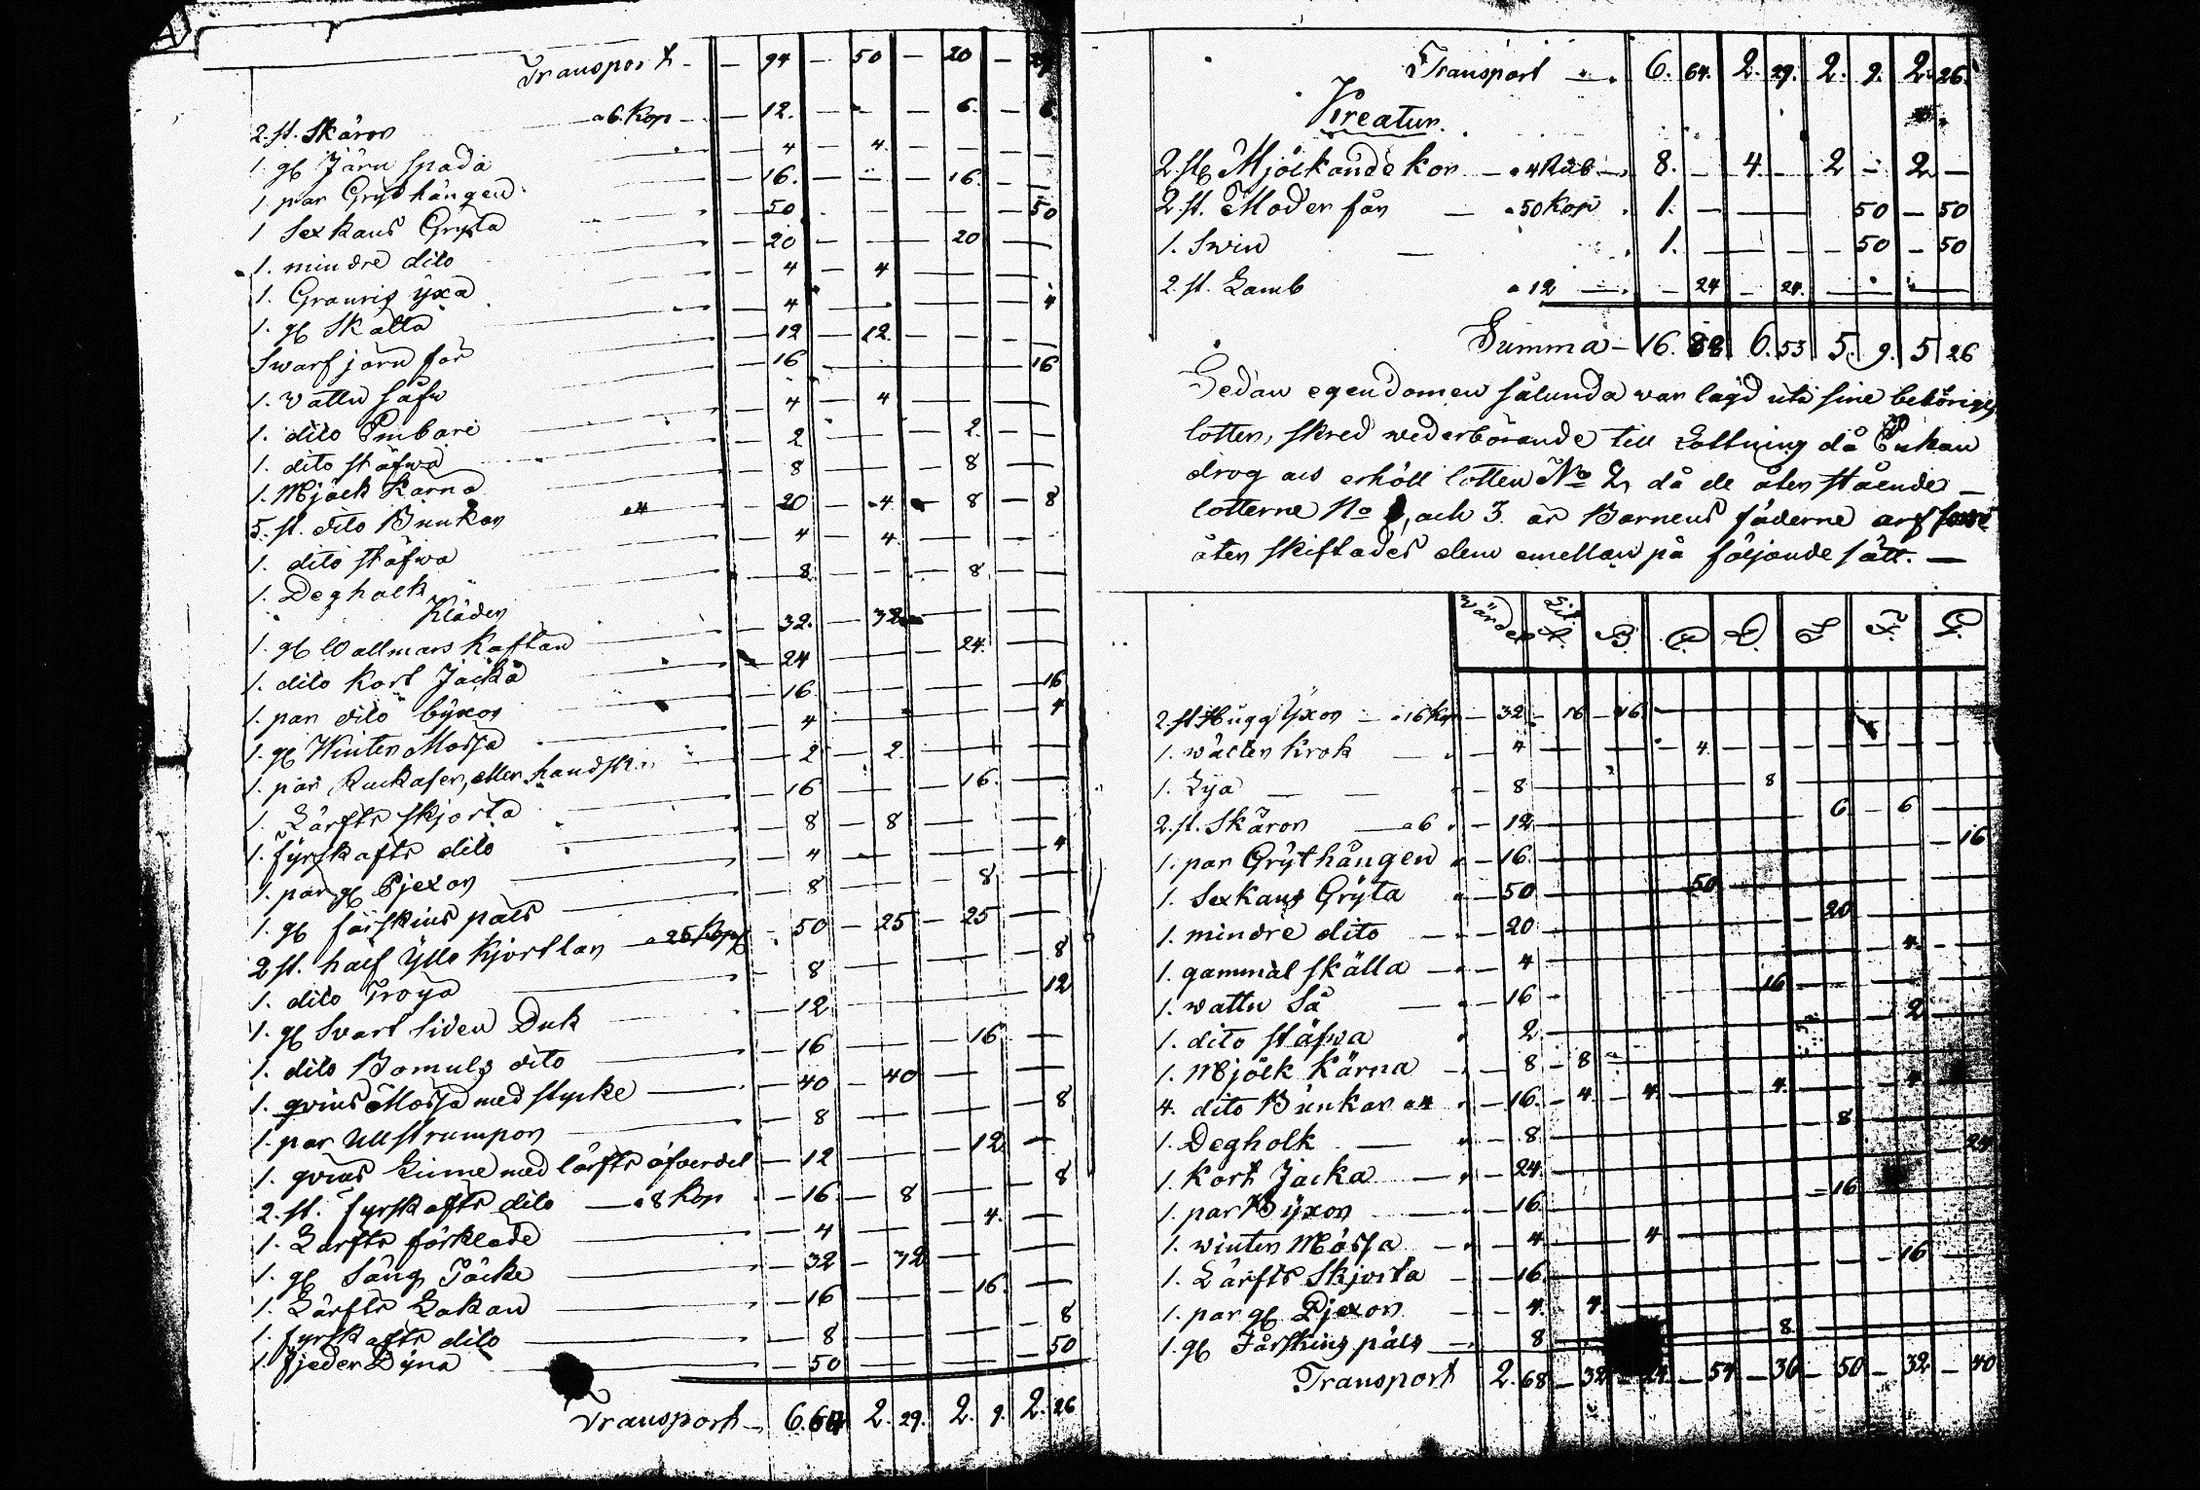 Transport - - 94 - 50 - 20 - 24
2. st. Skäror a 6. Kop - 12. - - - 6. - 6.
1. gl Järn spada - 4 - 4. - - -
1. par Grythängen - 16. - - - 16. -
1 Sexkans Gryta - 50 - - - 50
1. mindre dito - 20 - - 20 -
1. Granris ÿxa - 4 - 4 - -
1. gl Skälla - 4 - - - 4
Swarf järn för - 12 - 12. - - -
1. Vattu såfn - 16 - - - 16
1. dito Embare - 4 - 4 - -
1. dito stäfwa - 2 - - 2. -
1. Mjölk Kärna - 8 - - 8 -
5. st. dito Bunkar a 4 - 20 - 4. - 8 - 8
1. dito stäfwa - 4 - 4. - -
1. Degholk - 8. - - 8 -
Kläder
1. gl Wallmars Kaftan - 32. - 32 - -
1. dito Kort Jacka - 24 - - 24. -
1. par dito byxor - 16 - - - 16
1. gl Winter Mössa - 4 - - - 4
1. par Ruckaser, eller handsk - 2 - 2. - -
1. Lärfts skjorta - 16 - - 16. -
1. fÿrskafts dito - 8 - 8 - -
1. par gl Pjexor - 4 - - - 4
1. gl fårskins päls - 8 - - 8 -
2 st. half Ylle Kjortlar a 25 Kop - 50 - 25 - 25 -
1. dito Tröya - 8 - - - 8
1. gl Svart siden Duk - 12 - - - 12
1. dito Bomuls dito - 16 - - 16 -
1. qvins Mössa med stycke - 40 - 40 - -
1. par Ullstrumpor - 8 - - - 8
1. qvins Linne med lärfts öfverdel - 12 - - 12 -
2. st. fyrskafts dito a 8 Kop - 16. - 8 - - 8
1. Lärfts förklede - 4 - - 4. -
1. gl Säng Täcke - 32 - 32 - -
1. Lärfts Lakan - 16 - - 16. -
1. fyrskafts dito - 8 - - - 8
1. fjeder Dÿna - 50 - - - 50
Transport - 6. 64 2. 29. 2. 9. 2. 26
Transport - 6. 64. 2. 29. 2. 9. 2. 26.
Kreatur.
2. st Mjölkande kor - a 4 Rub - 8. - 4. - 2 - 2 -
2. st. Moder får - a 50 Kop 1. - - - 50 - 50
1. Swin - 1. - - - 50 - 50
2. st. Lamb a 12 - - 24 - 24. - - -
Summa - 16. 88 6. 53 5. 9. 5 26
Sedan egendomen sålunda war lagd uti sine behörige
lotter, skred wederbörande till Lottning då Enkan
drog och erhöll lotten No 2, då de åter stående
lotterne No 1, och 3. är Barnens fäderne arf
åter skiftades dem emellan på följande sätt. -
Värde Lit A. B. C. D. E. F. G.
2. st Hugg Ÿxor - a 16 Kop - 32 - 16 - 16. -
1. wälter Krok - 4 - - - 4. -
1. Lya - 8 - - 8 -
2. st. Skäror - a 6 - 12 - 6 - 6 -
1. par Grÿthängen - 16. - 16
1. Sexkans Grÿta - 50 - 50 -
1. mindre dito - 20 - 20 -
1. gammal skälla - 4 - 4. -
1. wattu Så - 16 - 16 -
1. dito stäfwa 2. - 2 -
1. Mjölk Kärna - 8 - 8 -
4. dito Bunkar a 4 - 16. - 4. - 4. - 4. - 4 -
1. Degholk - 8 - 8. -
1. Kort Jacka - 24 - 24
1. par Bÿxor - 16. - 16 -
1. winter Mössa - 4 - 4 -
1. Lärfts Skjorta - 16 - 16 -
1. par gl Pjexor - 4. - 4. -
1. gl Fårskins päls - 8 - 8. -
Transport 2. 68 - 32 - 24. - 54 - 36 - 50 - 32 - 40